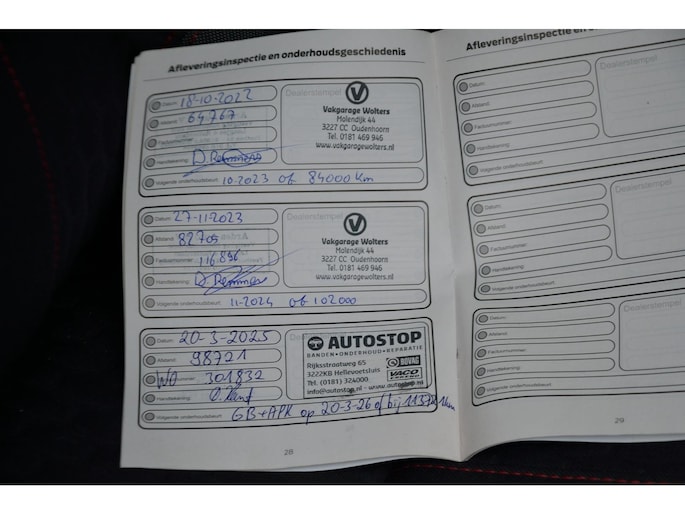 Afleveringsinspectie en onderhoudsgeschiedenis
Datum: 18-10-2022
Afstand: 64.767
Factuurnummer:
Handtekening:
Volgende onderhoudsbeurt: 10-2023 of 84000 Km
Dealerstempel
Vakgarage Wolters
Molendijk 44
3227 CC Oudenhoorn
Tel. 0181 469 946
www.vakgaragewolters.nl
Datum: 27-11-2023
Afstand: 82705
Factuurnummer: 116.896
Handtekening:
Volgende onderhoudsbeurt: 11-2024 of 102000
Dealerstempel
Vakgarage Wolters
Molendijk 44
3227 CC Oudenhoorn
Tel. 0181 469 946
www.vakgaragewolters.nl
Datum: 20-3-2025
Afstand: 98721
WO 301832
Handtekening:
Volgende onderhoudsbeurt: GB+APK op 20-3-26 of bij
AUTOSTOP
BANDEN•ONDERHOUD•REPARATIE
Rijksstraatweg 65
3222KB Hellevoetsluis
Tel. (0181) 324000
info@autostop.nl - www.autostop.nl
BOVAG
VACO
28
Afleveringsinspectie en
Datum:
Afstand:
Factuurnummer:
Handtekening:
Volgende onderhoudsbeurt:
Dealerstempel
Datum:
Afstand:
Factuurnummer:
Handtekening:
Volgende onderhoudsbeurt:
Dealerstempel
Datum:
Afstand:
Factuurnummer:
Handtekening:
Volgende onderhoudsbeurt:
Dealerstempel
29